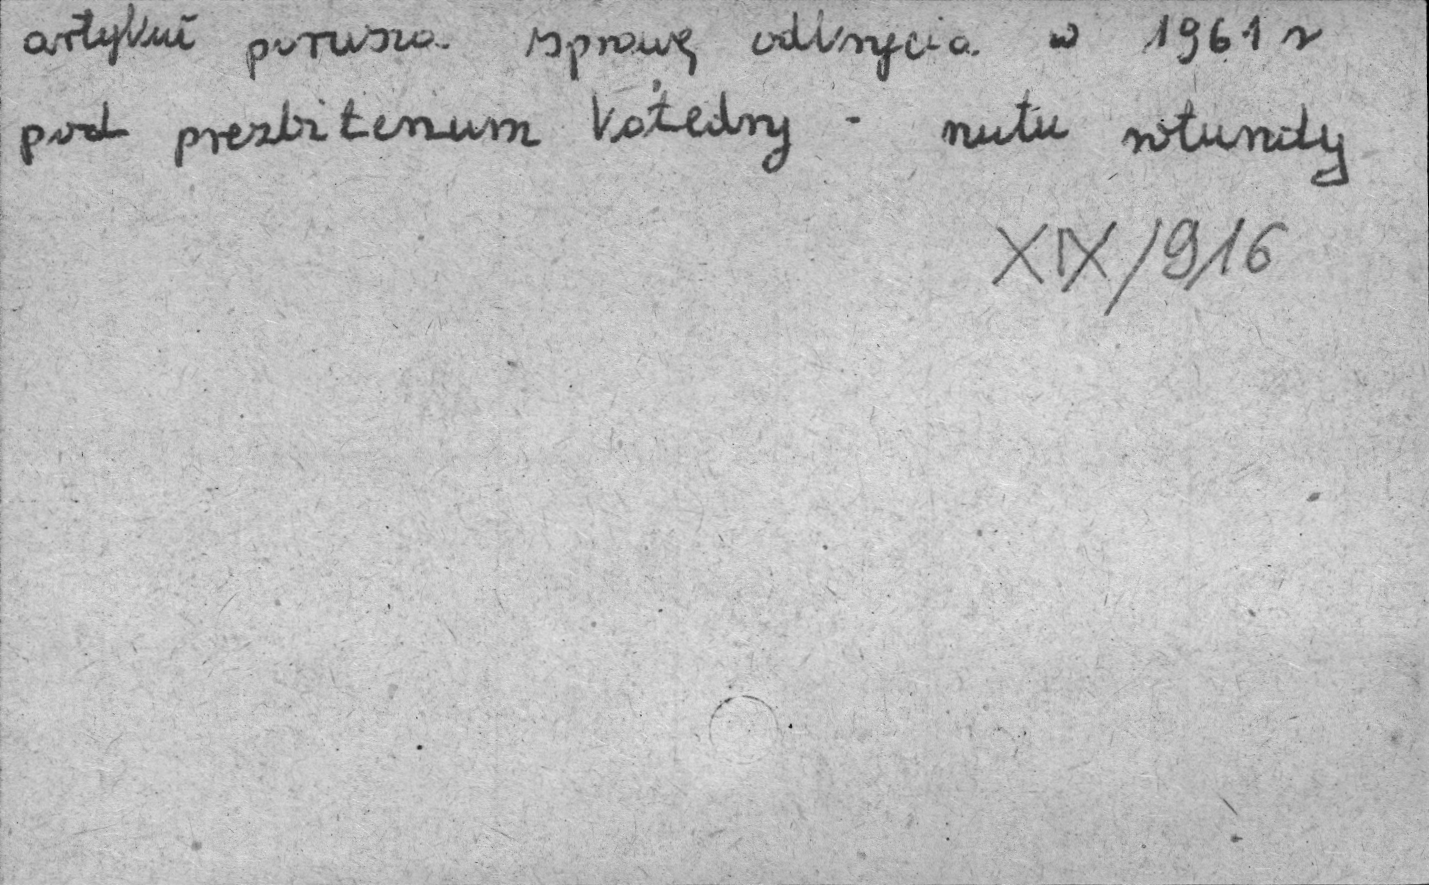 artykuł porusza sprawę odkrycia w 1961 r
pod prezbiterium Katedry - rzutu rotundy
XIX/916